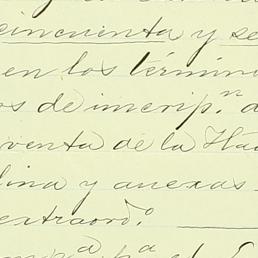 cincuenta y se
en los términ
os de inscrip.n d
venta de la Ha
lina y anexas
extraord.o